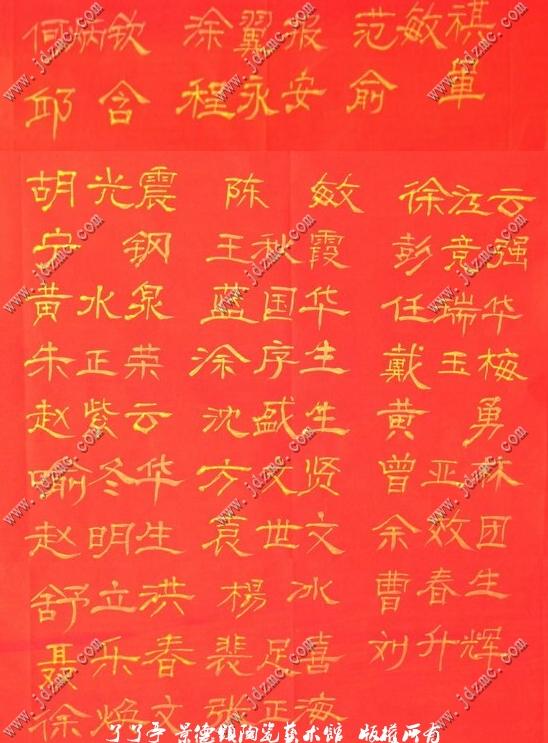 何炳钦 涂翼报 范敏祺
邱含 程永安 俞军
胡光震 陈敏 徐江云
宁钢 王秋霞 彭竞强
黄水泉 蓝国华 任瑞华
朱正荣 涂序生 戴玉梅
赵紫云 沈盛生 黄勇
喻冬华 方文贤 曾亚林
赵明生 袁世文 余效团
舒立洪 杨冰 曹春生
聂乐春 裴足喜 刘升辉
徐焕文 张正海
景德镇陶瓷艺术馆 版权所有
www.jdzmc.com